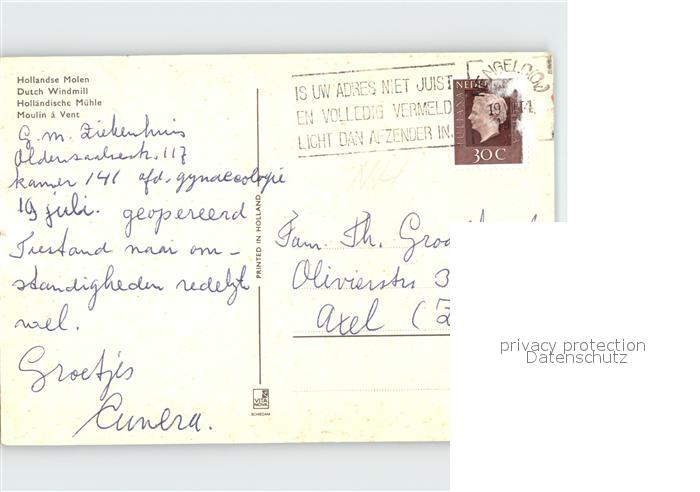 Hollandse Molen
Dutch Windmill
Holländische Mühle
Moulin à Vent
G.M. Ziekenhuis
Oldenzaalsestr. 117
Kamer 141 afd. gynaecologie
19 juli. geopereerd
Toestand naar om-
standigheden redelijk
wel.
Groetjes
Cunera.
PRINTED IN HOLLAND
VITA
NOVA
SCHIEDAM
IS UW ADRES NIET JUIST
EN VOLLEDIG VERMELD
LICHT DAN AFZENDER IN.
NEDER
JULIANA
30 C
19
Fam. Th.
Olivierstr 3
Axel (Z
privacy protection
Datenschutz